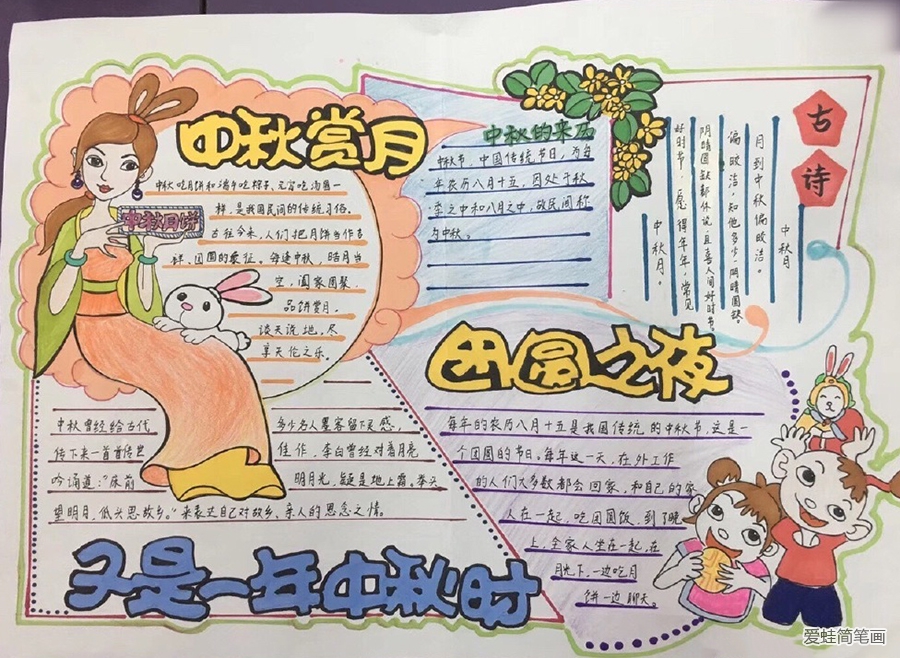 中秋赏月
中秋吃月饼和端午吃粽子、元宵吃汤圆一
样，是我国民间的传统习俗。
古往今来，人们把月饼当作吉
祥、团圆的象征。每逢中秋，皓月当
空，阖家团聚，
品饼赏月，
谈天说地，尽
享天伦之乐。
中秋月饼
中秋的来历
中秋节，中国传统节日，为每
年农历八月十五，因处于秋
季之中和八月之中，故民间称
为中秋。
古诗
中秋月
月到中秋偏皎洁。
偏皎洁，知他多少，阴晴圆缺。
阴晴圆缺都休说，且喜人间好时节。
好时节，愿得年年，常见
中秋月。
团圆之夜
每年的农历八月十五是我国传统的中秋节，这是一
个团圆的节日。每年这一天，在外工作
的人们大多数都会回家，和自己的家
人在一起，吃团圆饭，到了晚
上，全家人坐在一起，在
月光下，一边吃月
饼一边聊天。
中秋曾经给古代 多少名人墨客留下灵感，
传下来一首首传世 佳作，李白曾经对着月亮
吟诵道：“床前 明月光，疑是地上霜，举头
望明月，低头思故乡。”来表达自己对故乡、亲人的思念之情。
又是一年中秋时
爱蛙简笔画